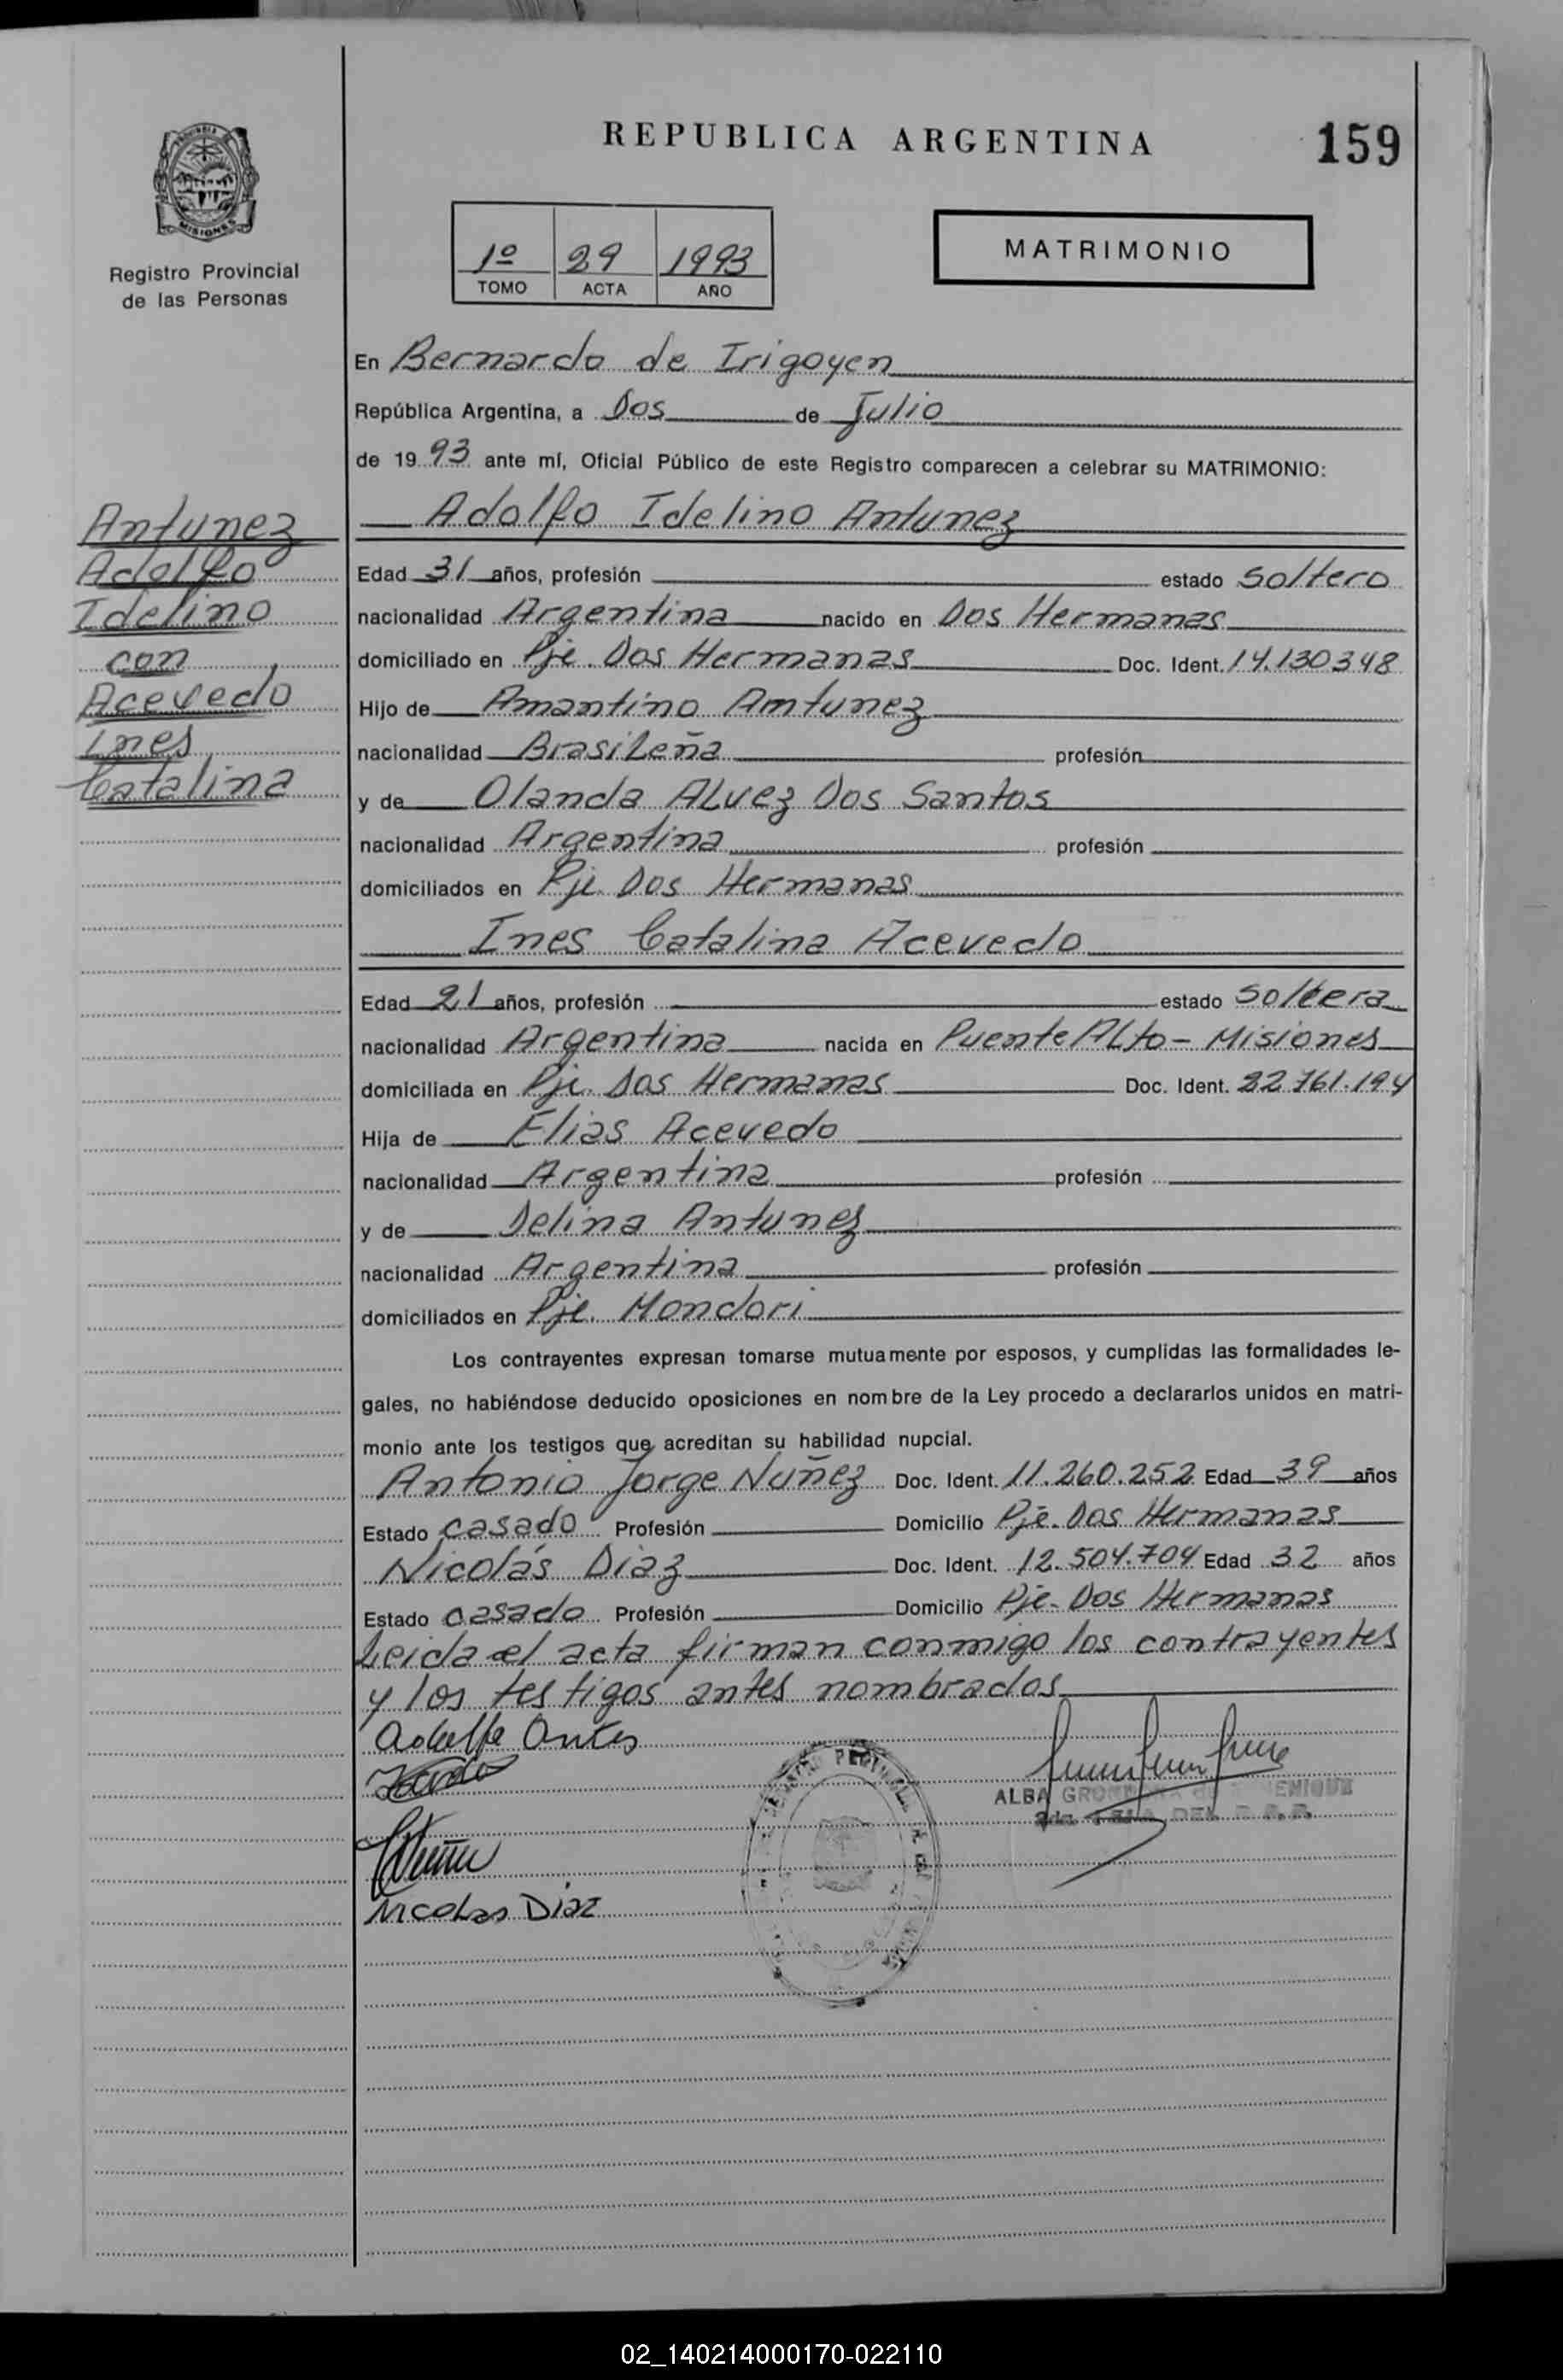 REPUBLICA ARGENTINA
159
MISIONES
Registro Provincial
de las Personas
1º 29 1993
TOMO ACTA AÑO
MATRIMONIO
En Bernardo de Irigoyen
República Argentina, a Dos de Julio
de 1993 ante mí, Oficial Público de este Registro comparecen a celebrar su MATRIMONIO:
Antunez
Adolfo
Idelino
con
Acevedo
Ines
Catalina
Adolfo Idelino Antunez
Edad 31 años, profesión estado Soltero
nacionalidad Argentina nacido en Dos Hermanas
domiciliado en Pje. Dos Hermanas Doc. Ident. 14.130348
Hijo de Amantino Amtunez
nacionalidad Brasileña profesión
y de Olanda Alvez Dos Santos
nacionalidad Argentina profesión
domiciliados en Pje. Dos Hermanas
Ines Catalina Acevedo
Edad 21 años, profesión estado Soltera
nacionalidad Argentina nacida en Puente Alto - Misiones
domiciliada en Pje. Dos Hermanas Doc. Ident. 22.761.194
Hija de Elias Acevedo
nacionalidad Argentina profesión
y de Delina Antunez
nacionalidad Argentina profesión
domiciliados en Pje. Mondori
Los contrayentes expresan tomarse mutuamente por esposos, y cumplidas las formalidades le-
gales, no habiéndose deducido oposiciones en nombre de la Ley procedo a declararlos unidos en matri-
monio ante los testigos que acreditan su habilidad nupcial.
Antonio Jorge Nuñez Doc. Ident. 11.260.252 Edad 39 años
Estado Casado Profesión Domicilio Pje. Dos Hermanas
Nicolás Diaz Doc. Ident. 12.504.704 Edad 32 años
Estado casado Profesión Domicilio Pje. Dos Hermanas
Leida el acta firman conmigo los contrayentes
y los testigos antes nombrados
Adolfo Antes
ALBA
Nicolas Diaz
02_140214000170-022110